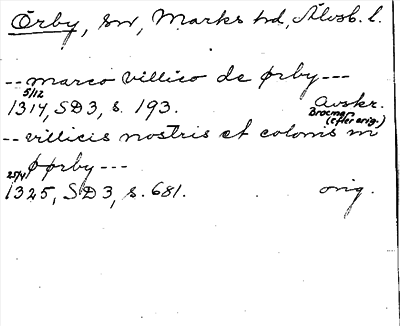 Örby, sn, Marks hd, Älvsb. l.
-- marco villico de ørby ---
5/12
1314, SD3, s. 193. Avskr.
Brocman
(efter orig.)
-- villicis nostris et colonis in
øørby ---
25/4
1325, SD3, s. 681. orig.